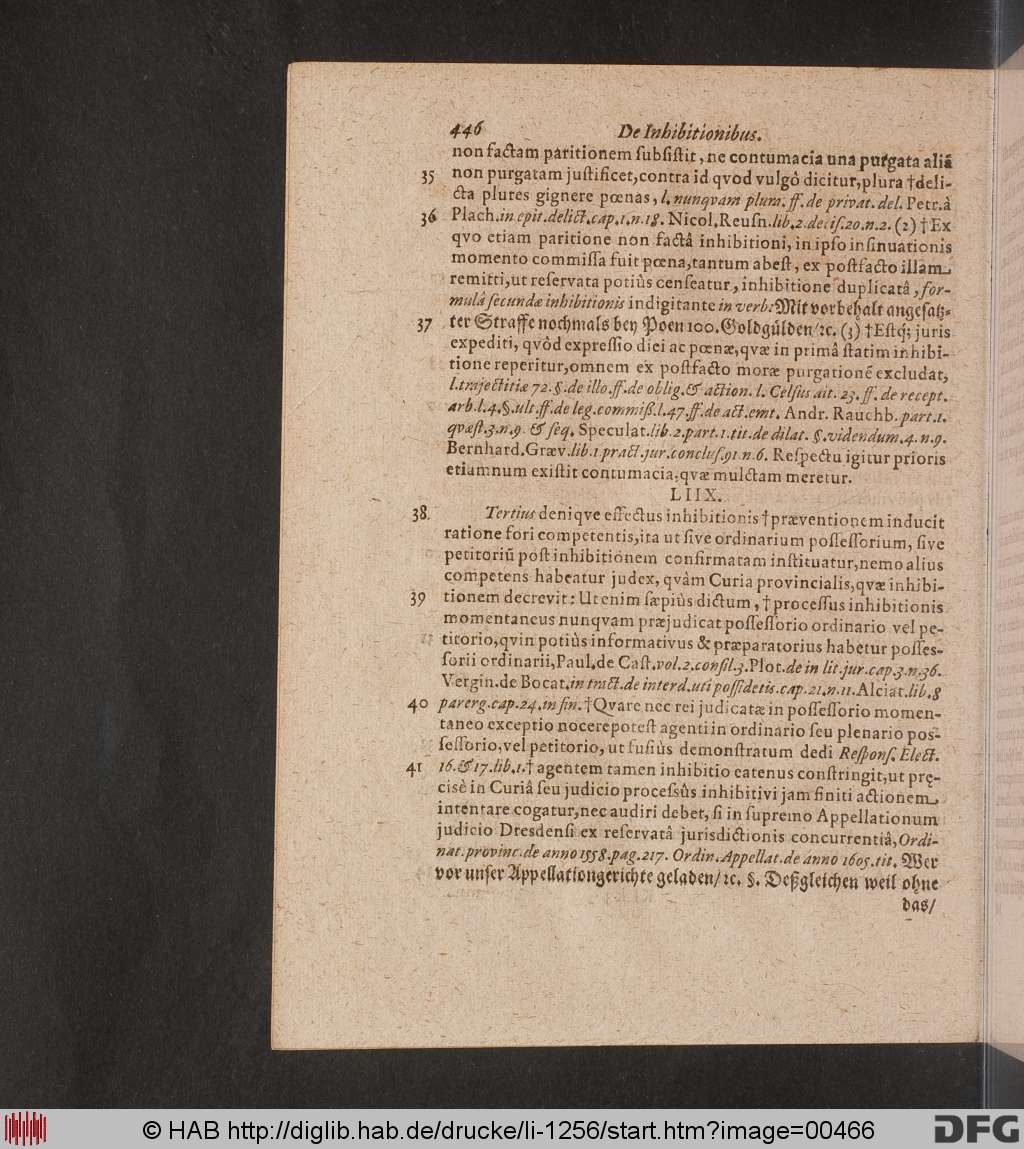 446 De Inhibitionibus.
non factam paritionem subsistit, ne contumacia una purgata aliã
35 non purgatam justificet, contra id qvod vulgô dicitur, plura †deli-
cta plures gignere pœnas, l. nunqvam plum. ff. de privat. del. Petr. à
36 Plach. in epit. delict. cap. 1. n. 18. Nicol. Reusn. lib. 2. decis. 20. n. 2. (2) † Ex
qvo etiam paritione non factâ inhibitioni, in ipso insinuationis
momento commissa fuit pœna, tantum abest, ex postfacto illam
remitti, ut reservata potiùs censeatur, inhibitione duplicatâ, for-
mulâ secundæ inhibitionis indigitante in verb: Mit vorbehalt angesatz-
37 ter Straffe nochmals bey Poen 100. Goldgülden/ ꝛc. (3) † Estq́; juris
expediti, qvòd expressio diei ac pœnæ, qvæ in primâ statim inhibi-
tione reperitur, omnem ex postfacto moræ purgationẽ excludat,
l. trajectitiæ 72. §. de illo. ff. de oblig. & action. l. Celsus ait. 23. ff. de recept.
arb. l. 4. §. ult. ff. de leg. commiß. l. 47. ff. de act. emt. Andr. Rauchb. part. 1.
qvæst. 3. n. 9. & seq. Speculat. lib. 2. part. 1. tit. de dilat. §. videndum. 4. n. 9.
Bernhard. Græv. lib. 1 pract. jur. conclus. 91 n. 6. Respectu igitur prioris
etiamnum existit contumacia, qvæ mulctam meretur.
LIIX.
38. Tertius deniqve effectus inhibitionis † præventionem inducit
ratione fori competentis, ita ut sive ordinarium possessorium, sive
petitoriũ post inhibitionem confirmatam instituatur, nemo alius
competens habeatur judex, qvàm Curia provincialis, qvæ inhibi-
39 tionem decrevit: Ut enim sæpiùs dictum, † processus inhibitionis
momentaneus nunqvam præjudicat possessorio ordinario vel pe-
titorio, qvin potiùs informativus & præparatorius habetur posses-
sorii ordinarii, Paul. de Cast. vol. 2. consil. 3. Plot. de in lit. jur. cap. 3. n. 36.
Vergin. de Bocat. in tract. de interd. uti possidetis. cap. 21. n. 11. Alciat. lib. 8
40 parerg. cap. 24. in fin. † Qvare nec rei judicatæ in possessorio momen-
taneo exceptio nocere potest agenti in ordinario seu plenario pos-
sessorio, vel petitorio, ut fusiùs demonstratum dedi Respons. Elect.
41 16. & 17. lib. 1. † agentem tamen inhibitio eatenus constringit, ut prę-
cisè in Curiâ seu judicio processûs inhibitivi jam finiti actionem
intentare cogatur, nec audiri debet, si in supremo Appellationum
judicio Dresdensi ex reservatâ jurisdictionis concurrentiâ, Ordi-
nat. provinc. de anno 1558. pag. 217. Ordin. Appellat. de anno 1605. tit. Wer
vor unser Appellationgerichte geladen/ ꝛc. §. Deßgleichen weil ohne
das/
© HAB http://diglib.hab.de/drucke/li-1256/start.htm?image=00466
DFG